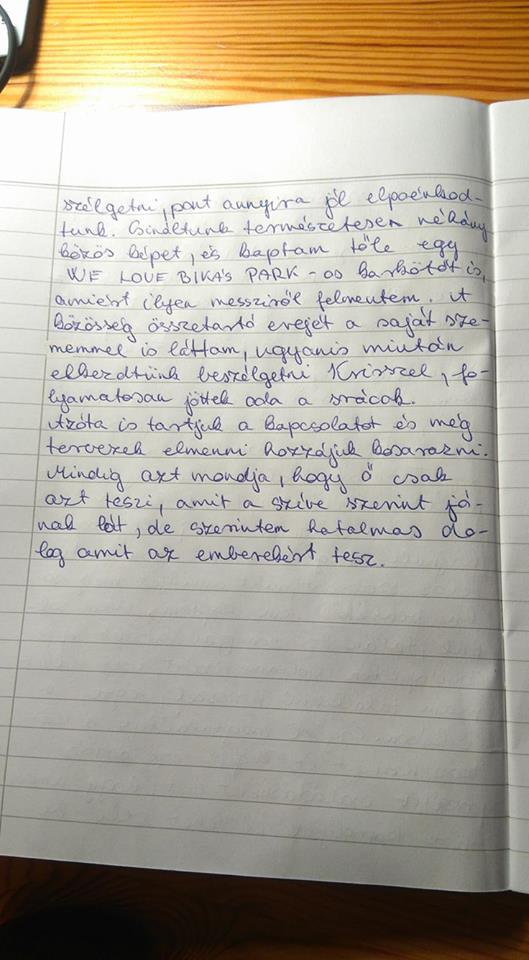 szélgetni, pont annyira jól elpoénkod-
tunk. Csináltunk természetesen néhány
közös képet, és kaptam tőle egy
WE LOVE BIKA'S PARK-os karkötőt is,
amiért ilyen messziről felmentem. A
közösség összetartó erejét a saját sze-
memmel is láttam, ugyanis miután
elkezdtünk beszélgetni Krisszel, fo-
lyamatosan jöttek oda a srácok.
Azóta is tartjuk a kapcsolatot és még
tervezek elmenni hozzájuk kosarazni.
Mindig azt mondja, hogy ő csak
azt teszi, amit a szíve szerint jó-
nak lát, de szerintem hatalmas do-
log amit az emberekért tesz.